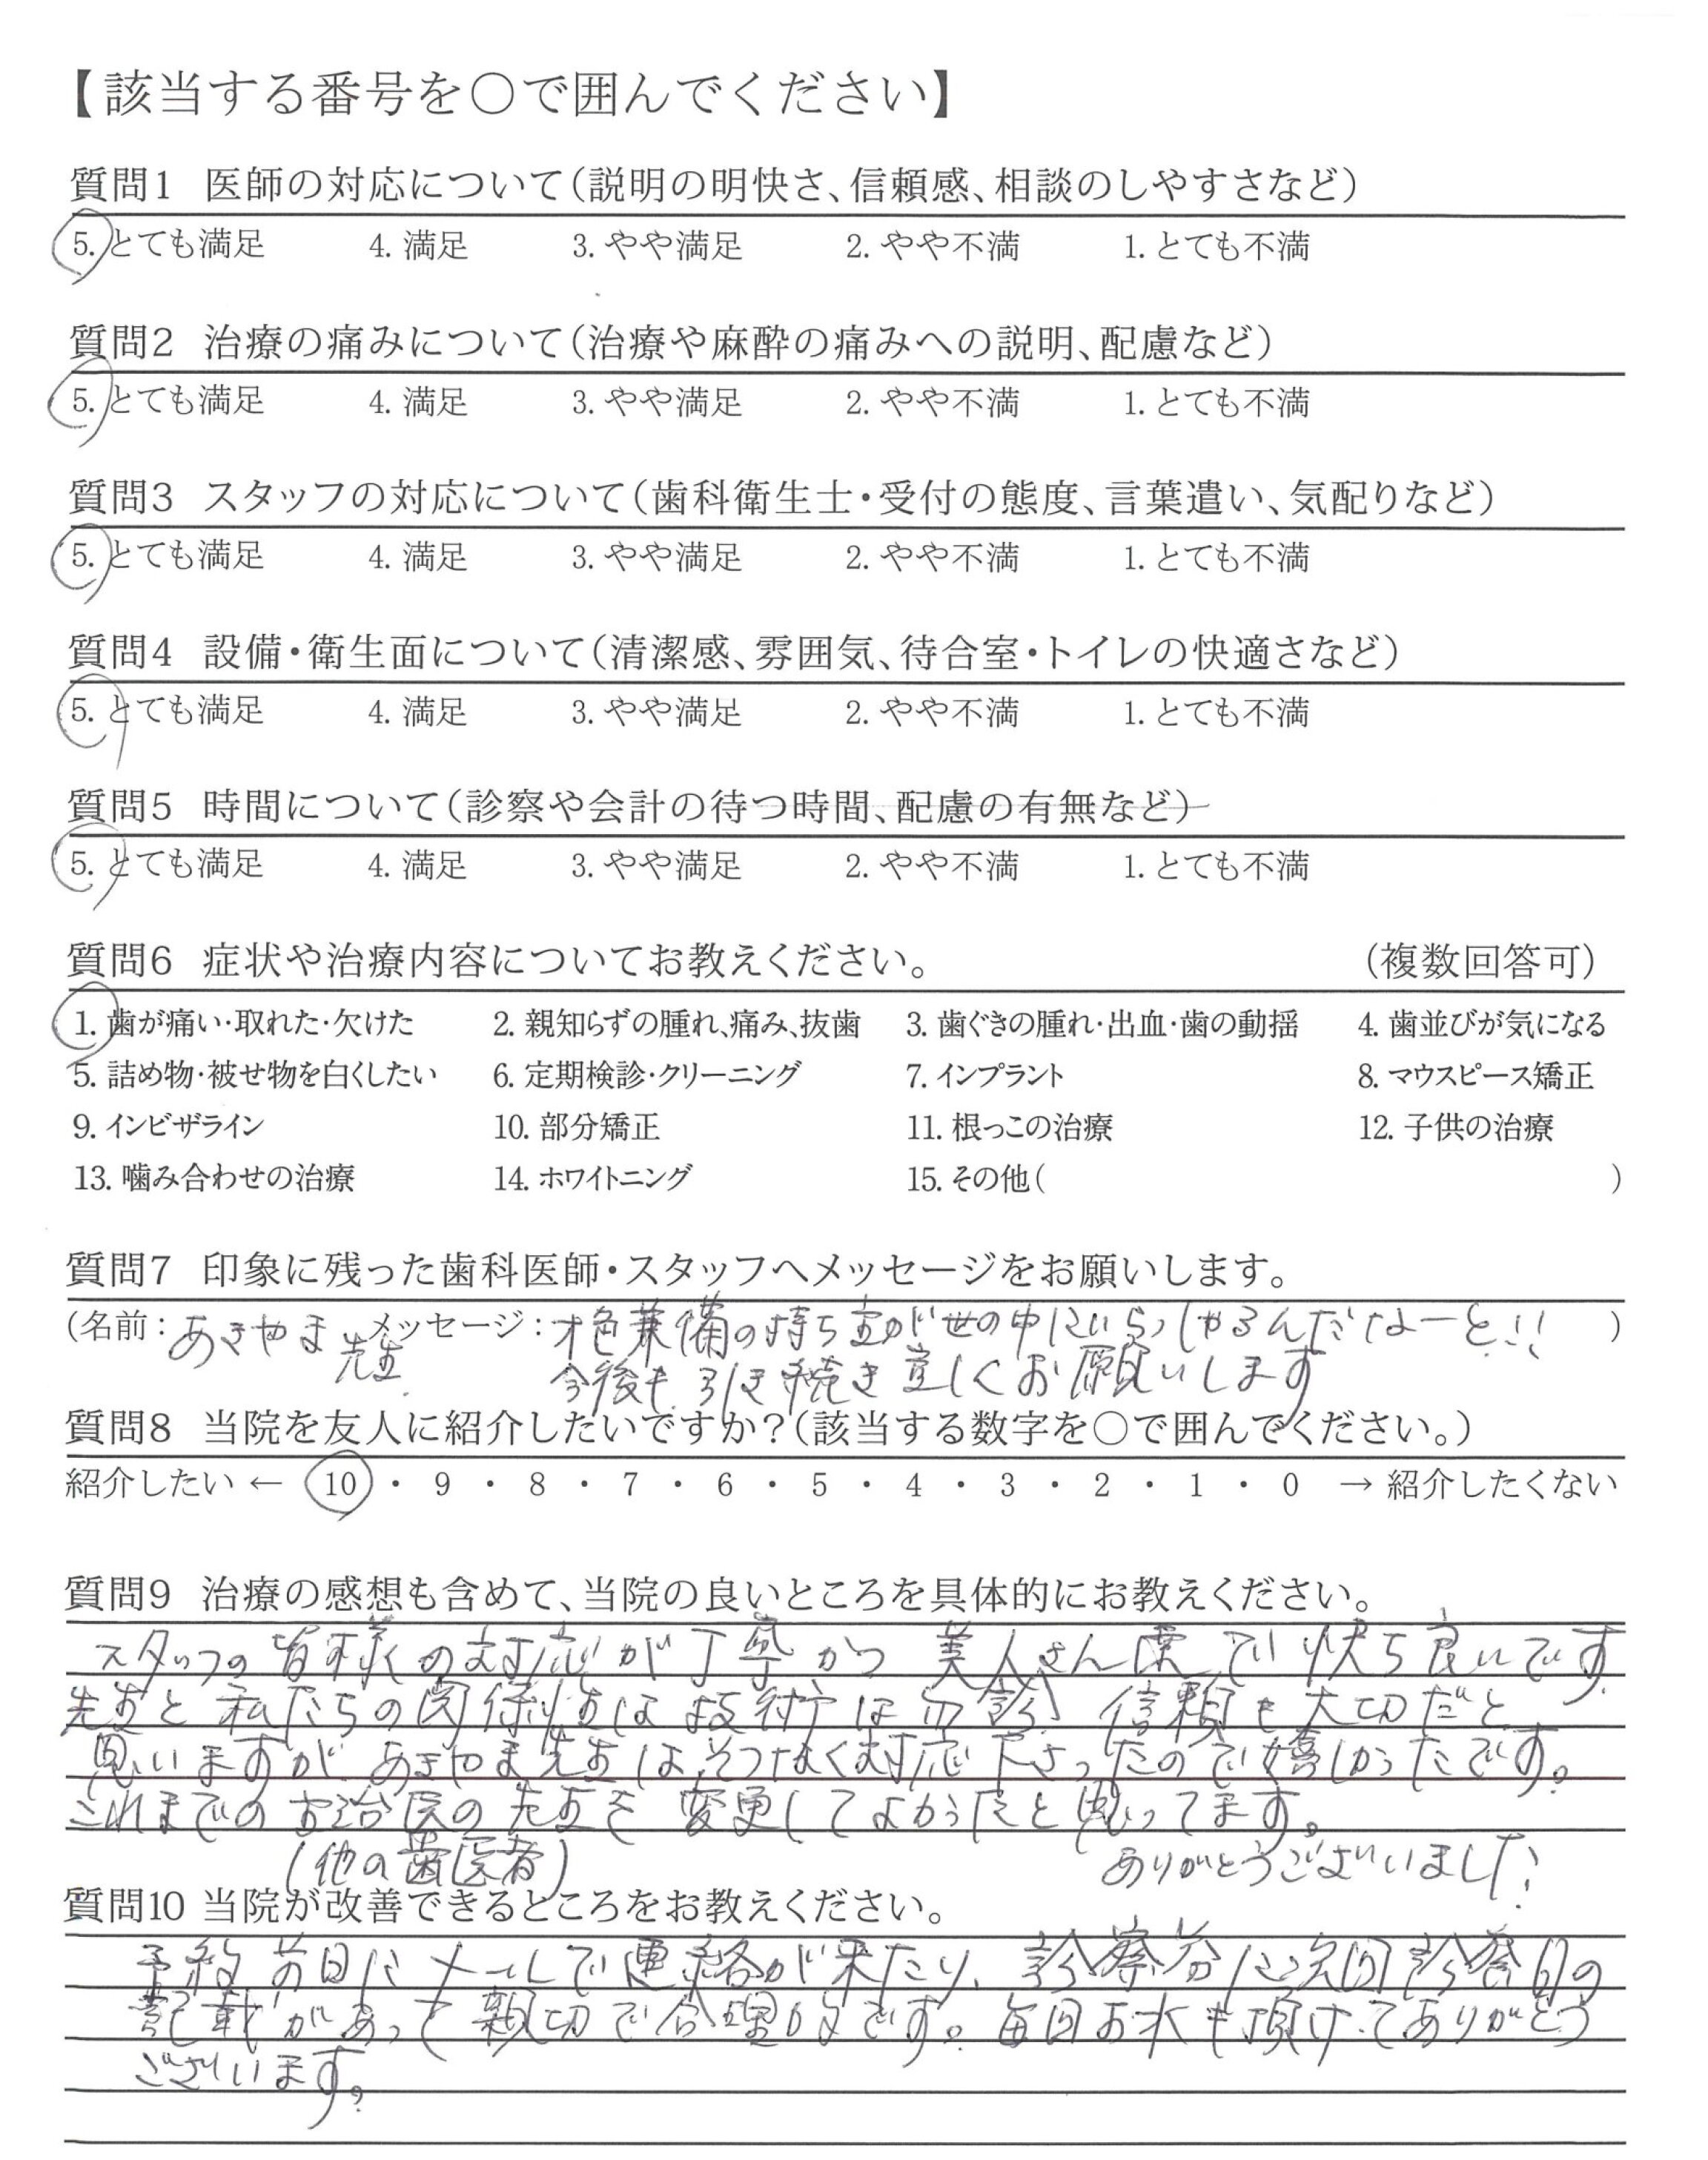 【該当する番号を○で囲んでください】
質問1 医師の対応について(説明の明快さ、信頼感、相談のしやすさなど)
5. とても満足 4. 満足 3. やや満足 2. やや不満 1. とても不満
質問2 治療の痛みについて(治療や麻酔の痛みへの説明、配慮など)
5. とても満足 4. 満足 3. やや満足 2. やや不満 1. とても不満
質問3 スタッフの対応について(歯科衛生士・受付の態度、言葉遣い、気配りなど)
5. とても満足 4. 満足 3. やや満足 2. やや不満 1. とても不満
質問4 設備・衛生面について(清潔感、雰囲気、待合室・トイレの快適さなど)
5. とても満足 4. 満足 3. やや満足 2. やや不満 1. とても不満
質問5 時間について(診察や会計の待つ時間、配慮の有無など)
5. とても満足 4. 満足 3. やや満足 2. やや不満 1. とても不満
質問6 症状や治療内容についてお教えください。 (複数回答可)
1. 歯が痛い・取れた・欠けた 2. 親知らずの腫れ、痛み、抜歯 3. 歯ぐきの腫れ・出血・歯の動揺 4. 歯並びが気になる
5. 詰め物・被せ物を白くしたい 6. 定期検診・クリーニング 7. インプラント 8. マウスピース矯正
9. インビザライン 10. 部分矯正 11. 根っこの治療 12. 子供の治療
13. 噛み合わせの治療 14. ホワイトニング 15. その他( )
質問7 印象に残った歯科医師・スタッフへメッセージをお願いします。
(名前:あきやま先生 メッセージ:才色兼備の持ち主が世の中にいらっしゃるんだなーと!! )
今後も引き続き宜しくお願いします
質問8 当院を友人に紹介したいですか?(該当する数字を○で囲んでください。)
紹介したい ← 10 ・ 9 ・ 8 ・ 7 ・ 6 ・ 5 ・ 4 ・ 3 ・ 2 ・ 1 ・ 0 → 紹介したくない
質問9 治療の感想も含めて、当院の良いところを具体的にお教えください。
スタッフの皆様の対応が丁寧かつ美人さん揃いで気持ち良いです
先生と私たちの関係性は技術は勿論、信頼も大切だと
思いますが あきやま先生はそつなく対応下さったので嬉しかったです。
これまでの お治医の先生を変更してよかったと思ってます。
(他の歯医者) ありがとうございました!
質問10 当院が改善できるところをお教えください。
予約前日にメールで連絡が来たり、診察券に次回診察日の
記載があって親切で合理的です。毎回お水も頂けてありがとう
ございます。